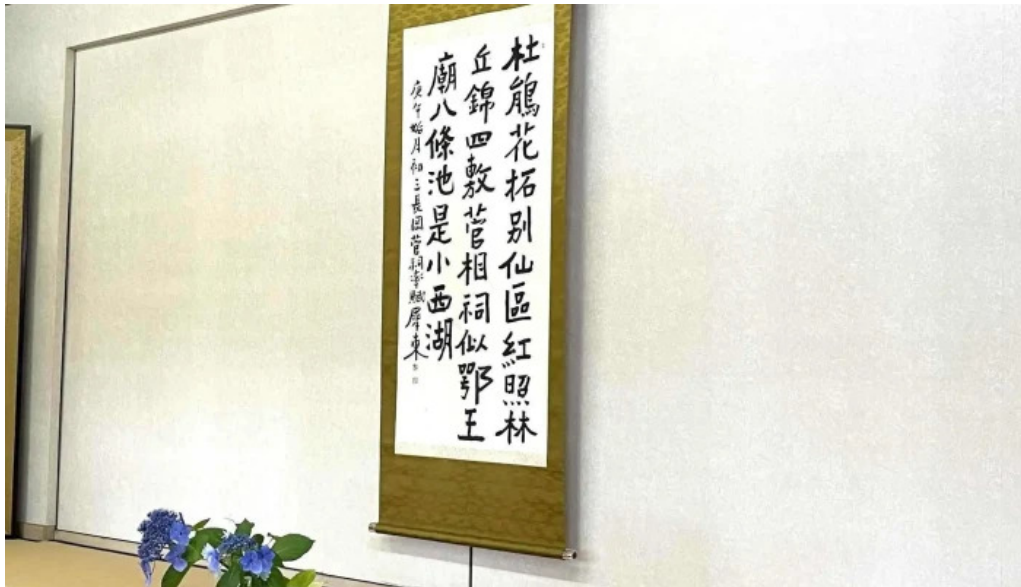 杜鵑花拓別仙區紅照林
丘錦四敷菅相祠似鄂王
廟八條池是小西湖
庚午月初三長岡菅祠賦犀東